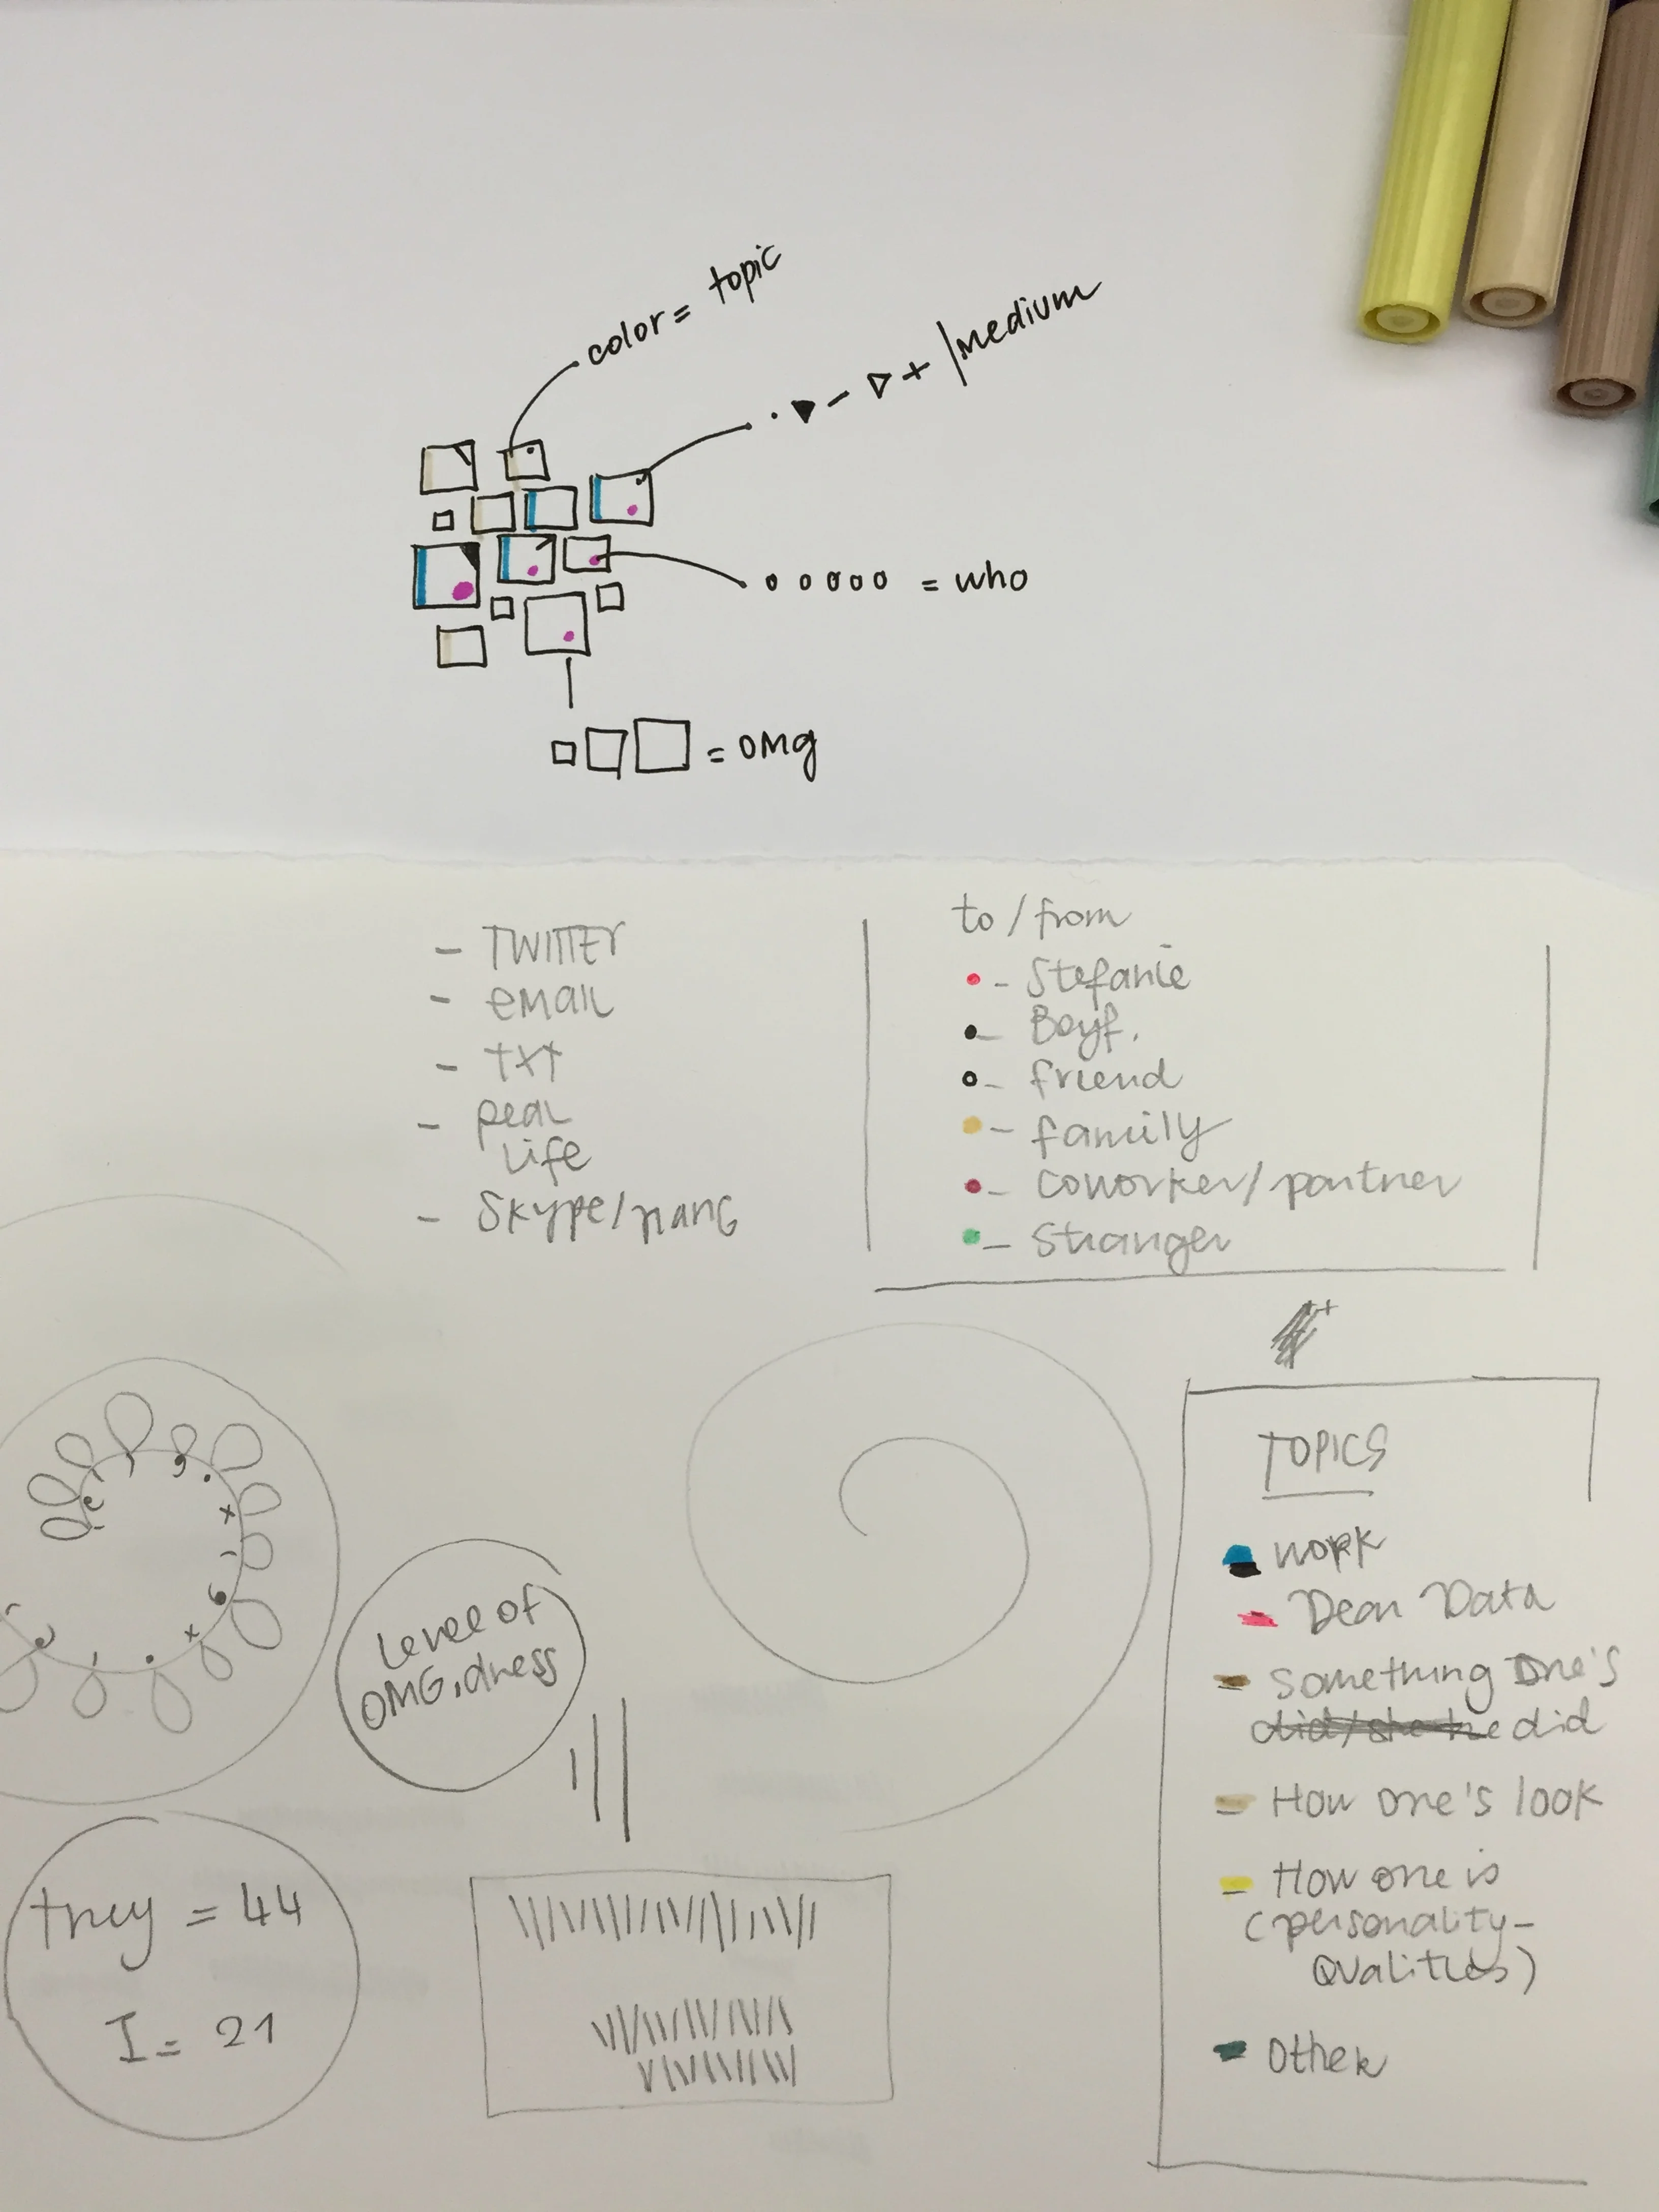 color = topic
· ▼ – ▽ + / medium
o o o o o = who
= OMg
– TWITTER
– email
– txt
– real
life
– Skype/hang
to / from
– Stefanie
– Boyf.
– friend
– family
– coworker/partner
– Stranger
++
TOPICS
work
Dear Data
– something one's
did
– How one's look
– How one is
(personality-
qualities)
– Other
Level of
OMG.dness
they = 44
I = 21